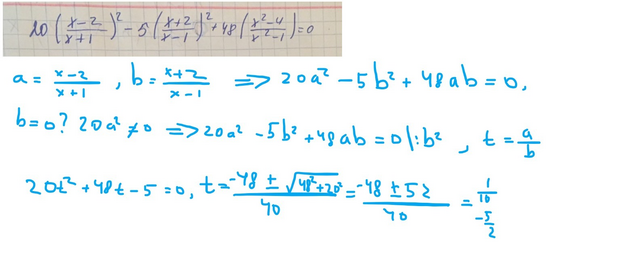 20(x-2/x+1)² - 5(x+2/x-1)² + 48(x²-4/x²-1) = 0
a = x-2/x+1, b = x+2/x-1 ⟹ 20a² - 5b² + 48ab = 0,
b=0? 20a² ≠ 0 ⟹ 20a² - 5b² + 48ab = 0 |: b², t = a/b
20t² + 48t - 5 = 0, t = -48 ± √48²+20²/40 = -48 ± 52/40 = 1/10
-5/2